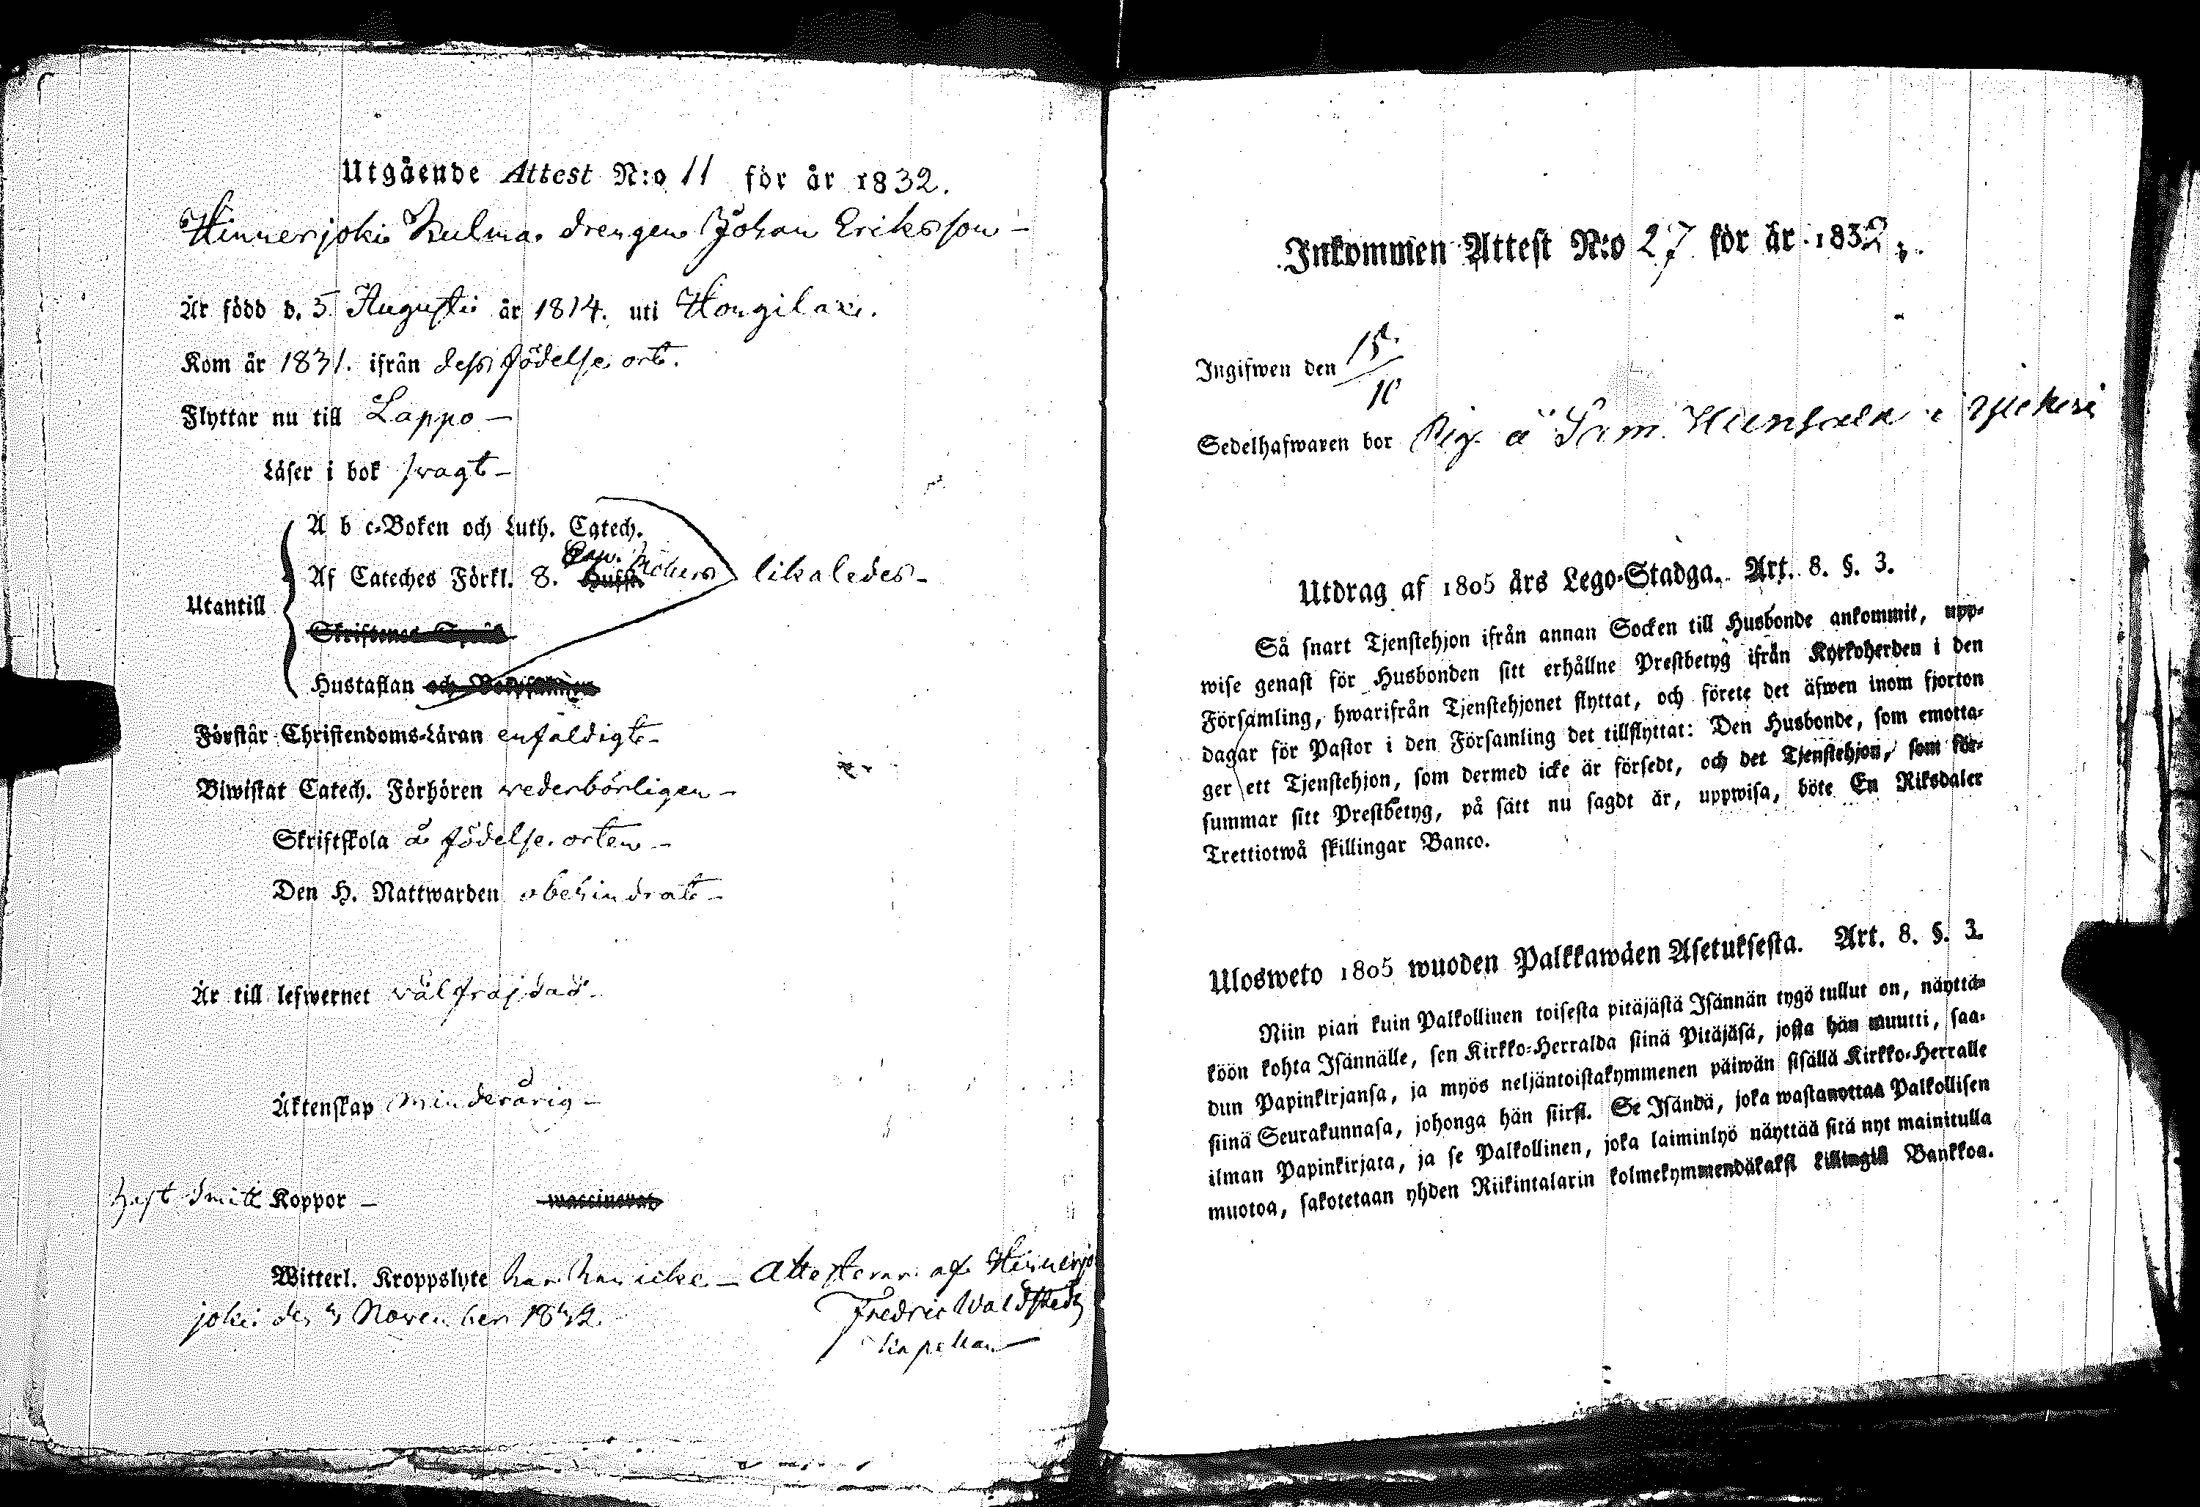 Utgående Attest N:o 11 för år 1832.
Hinnerjoki Kulma drengen Johan Eriksson –
Är född d. 5 Augusti år 1814. uti Hongilax.
Kom år 1831. ifrån dess födelse ort.
Flyttar nu till Lappo –
Läser i bok svagt –
A b c-Boken och Luth. Catech.
Af Cateches Förkl. 8. likaledes –
Utantill
Hustaflan
Förstår Christendoms-Läran enfaldigt –
Biwistat Catech. Förhören vederbörligen –
Skriftskola å födelse orten –
Den H. Nattwarden obehindrat –
Är till lefwernet välfräjdad –
Äktenskap minderårig –
haft Koppor –
Witterl. Kroppslyte har han icke – Attesterar af Hinnerjo
joki den 3 November 1832.
Fredric Waldstedt
Kapellan
Inkommen Attest N:o 27 för år 1832.
Ingifwen den 15/10
Sedelhafwaren bor
Utdrag af 1805 års Lego-Stadga. Art. 8. §. 3.
Så snart Tjenstehjon ifrån annan Socken till Husbonde ankommit, upp-
wise genast för Husbonden sitt erhållne Prestbetyg ifrån Kyrkoherden i den
Församling, hwarifrån Tjenstehjonet flyttat, och förete det äfwen inom fjorton
dagar för Pastor i den Församling det tillflyttat: Den Husbonde, som emotta-
ger ett Tjenstehjon, som dermed icke är försedt, och det Tjenstehjon, som för-
summar sitt Prestbetyg, på sätt nu sagdt är, uppwisa, böte En Riksdaler
Trettiotwå skillingar Banco.
Ulosweto 1805 wuoden Palkkawäen Asetuksesta. Art. 8. §. 3.
Niin pian kuin Palkollinen toisesta pitäjästä Isännän tygö tullut on, näyttä-
köön kohta Isännälle, sen Kirkko-Herralda siinä Pitäjäsä, josta hän muutti, saa-
dun Papinkirjansa, ja myös neljäntoistakymmenen päiwän sisällä Kirkko-Herralle
siinä Seurakunnasa, johonga hän siirsi. Se Isändä, joka wastanottaa Palkollisen
ilman Papinkirjata, ja se Palkollinen, joka laiminlyö näyttää sitä nyt mainitulla
muotoa, sakotetaan yhden Riikintalarin kolmekymmendäkaksi killingill Bankkoa.